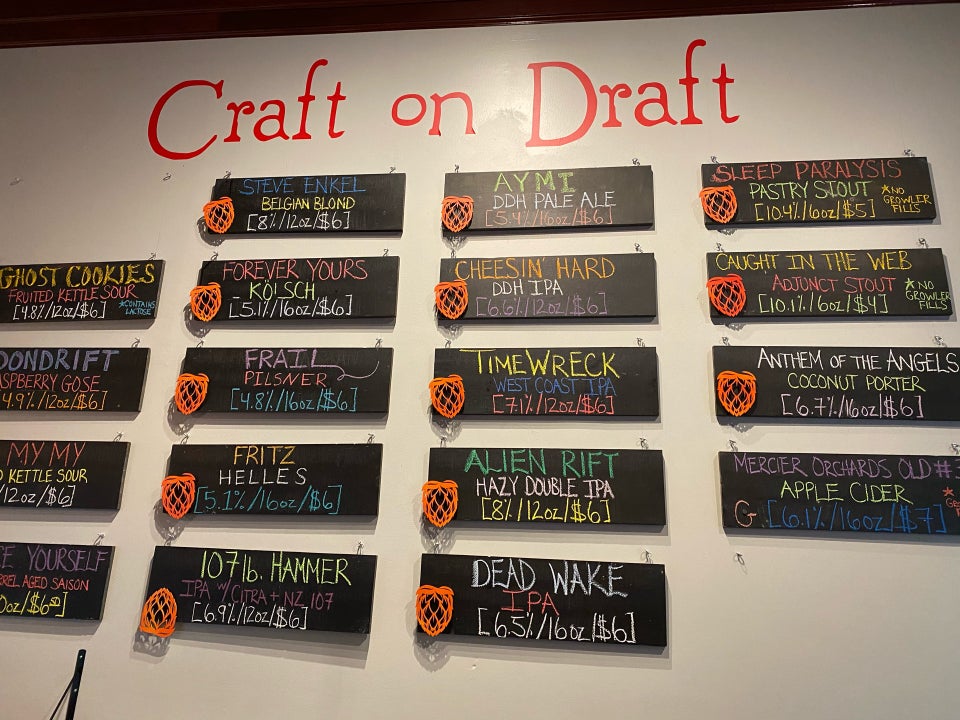 Craft on Draft
GHOST COOKIES
FRUITED KETTLE SOUR
[4.8%/12oz/$6]
*CONTAINS
LACTOSE
GOSE
4.9%/12oz/$6]
MY MY
KETTLE SOUR
/12oz/$6]
YOURSELF
AGED SAISON
STEVE ENKEL
BELGIAN BLOND
[8%/12oz/$6]
FOREVER YOURS
KÖLSCH
[5.1%/16oz/$6]
FRAIL
PILSNER
[4.8%/16oz/$6]
FRITZ
HELLES
[5.1%/16oz/$6]
107lb. HAMMER
IPA W/CITRA + NZ 107
[6.9%/12oz/$6]
AYMI
DDH PALE ALE
[5.4%/16oz/$6]
CHEESIN' HARD
DDH IPA
[6.6%/12oz/$6]
TIMEWRECK
WEST COAST IPA
[7.1%/12oz/$6]
ALIEN RIFT
HAZY DOUBLE IPA
[8%/12oz/$6]
DEAD WAKE
IPA
[6.5%/16oz/$6]
SLEEP PARALYSIS
PASTRY STOUT
[10.4%/6oz/$5]
*NO
GROWLER
FILLS
CAUGHT IN THE WEB
ADJUNCT STOUT
[10.1%/6oz/$4]
*NO
GROWLER
FILLS
ANTHEM OF THE ANGELS
COCONUT PORTER
[6.7%/16oz/$6]
MERCIER ORCHARDS OLD #3
APPLE CIDER
G- [6.1%/16oz/$7]